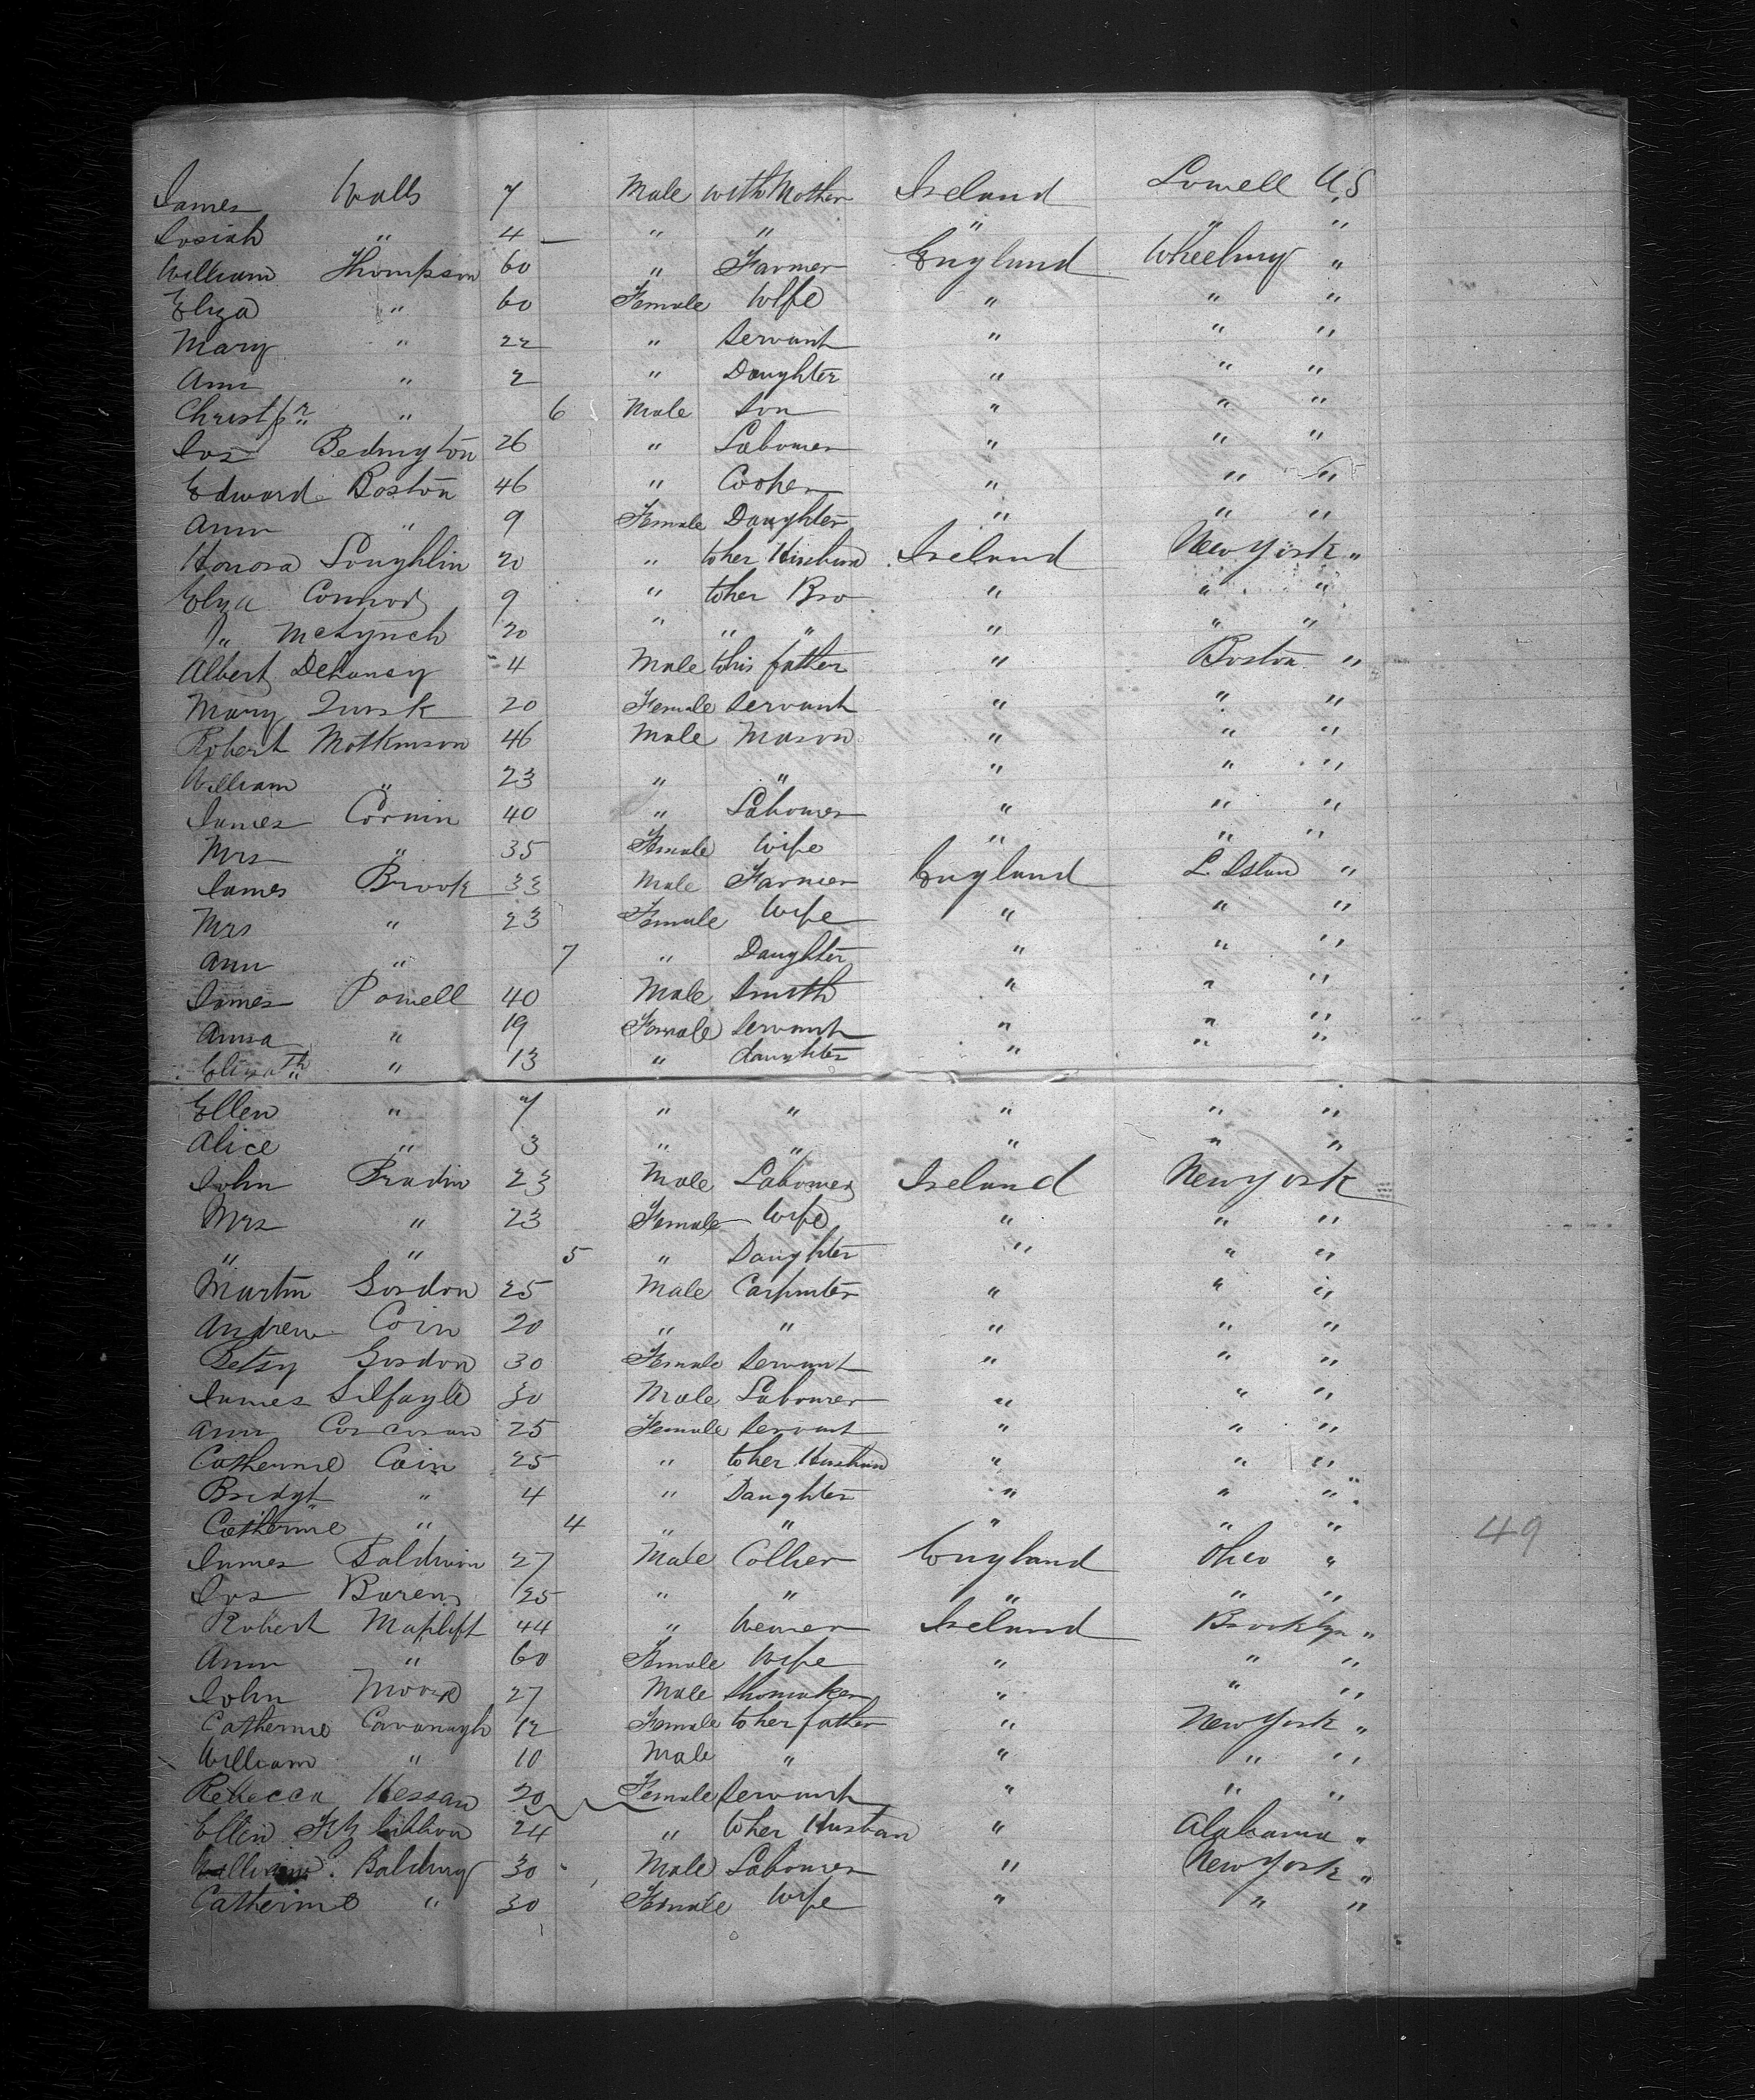 James Walls 7 Male with Mother Ireland Lowell U,S
Josiah " 4 — " " " " "
William Thompson 60 " Farmer England Wheeling "
Eliza " 60 Female Wife " " "
Mary " 22 " Servant " " "
Ann " 2 " Daughter " " "
Christpr " 6 Male Son " " "
Jos Bedington 26 " Labourer " " "
Edward Boston 46 " Cooper " " "
Ann " 9 Female Daughter " " "
Honora Loughlin 20 " to her Husband Ireland New York "
Eliza Connor 9 " to her Bro " " "
" McLynch 20 " " " " " "
Albert Delaney 4 Male to his father " Boston "
Mary Quirk 20 Female Servant " " "
Robert Motkinson 46 Male Mason " " "
William " 23 " " " " "
James Cornin 40 " Labourer " " "
Mrs " 35 Female Wife " " "
James Brook 33 Male Farmer England L. Islan "
Mrs " 23 Female Wife " " "
Ann " 7 " Daughter " " "
James Powell 40 Male Smith " " "
Anna " 19 Female Servant " " "
Elizath " 13 " daughter " " "
Ellen " 7 " " " " "
Alice " 3 " " " " "
John Bradin 23 Male Labourer Ireland New York
Mrs " 23 Female Wife " " "
" " 5 " Daughter " " "
Martin Gordon 25 Male Carpinter " " "
Andrew Coin 20 " " " " "
Betsy Gordon 30 Female Servant " " "
James Gilfoyle 30 Male Labourer " " "
Ann Corcoran 25 Female Servant " " "
Catherine Coin 25 " to her Husband " " "
Bridgt " 4 " Daughter " " "
Catherine " 4 " " " " "
49
James Baldwin 27 Male Collier England Ohio "
Jos Barens 25 " " " " "
Robert Maplift 44 " Weaver Ireland Brooklyn "
Ann " 60 Female Wife " " "
John Moore 27 Male Shomaker " " "
Catherine Cavanagh 12 Female to her father " New York "
William " 10 Male " " " "
Rebecca Hessan 20 Female Servant " " "
Ellen Fitzgibbon 24 " to her Husban " Alabama "
William Balding 30 Male Labourer " New York "
Catherine " 30 Female Wife " " "